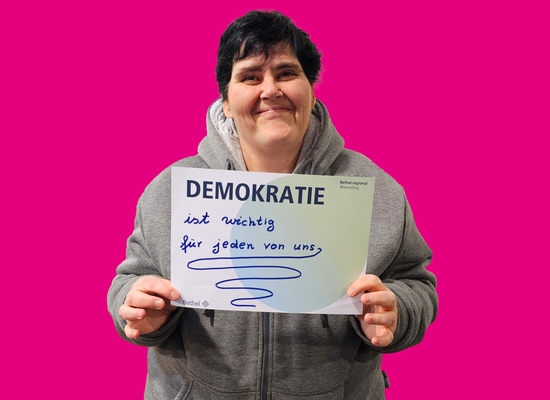 DEMOKRATIE
Bethel.regional
ist wichtig
für jeden von uns
Bethel